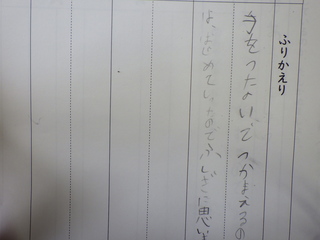 ふりかえり
手をつないでつかまえるの
は、はじめてしったのでふしぎに思い